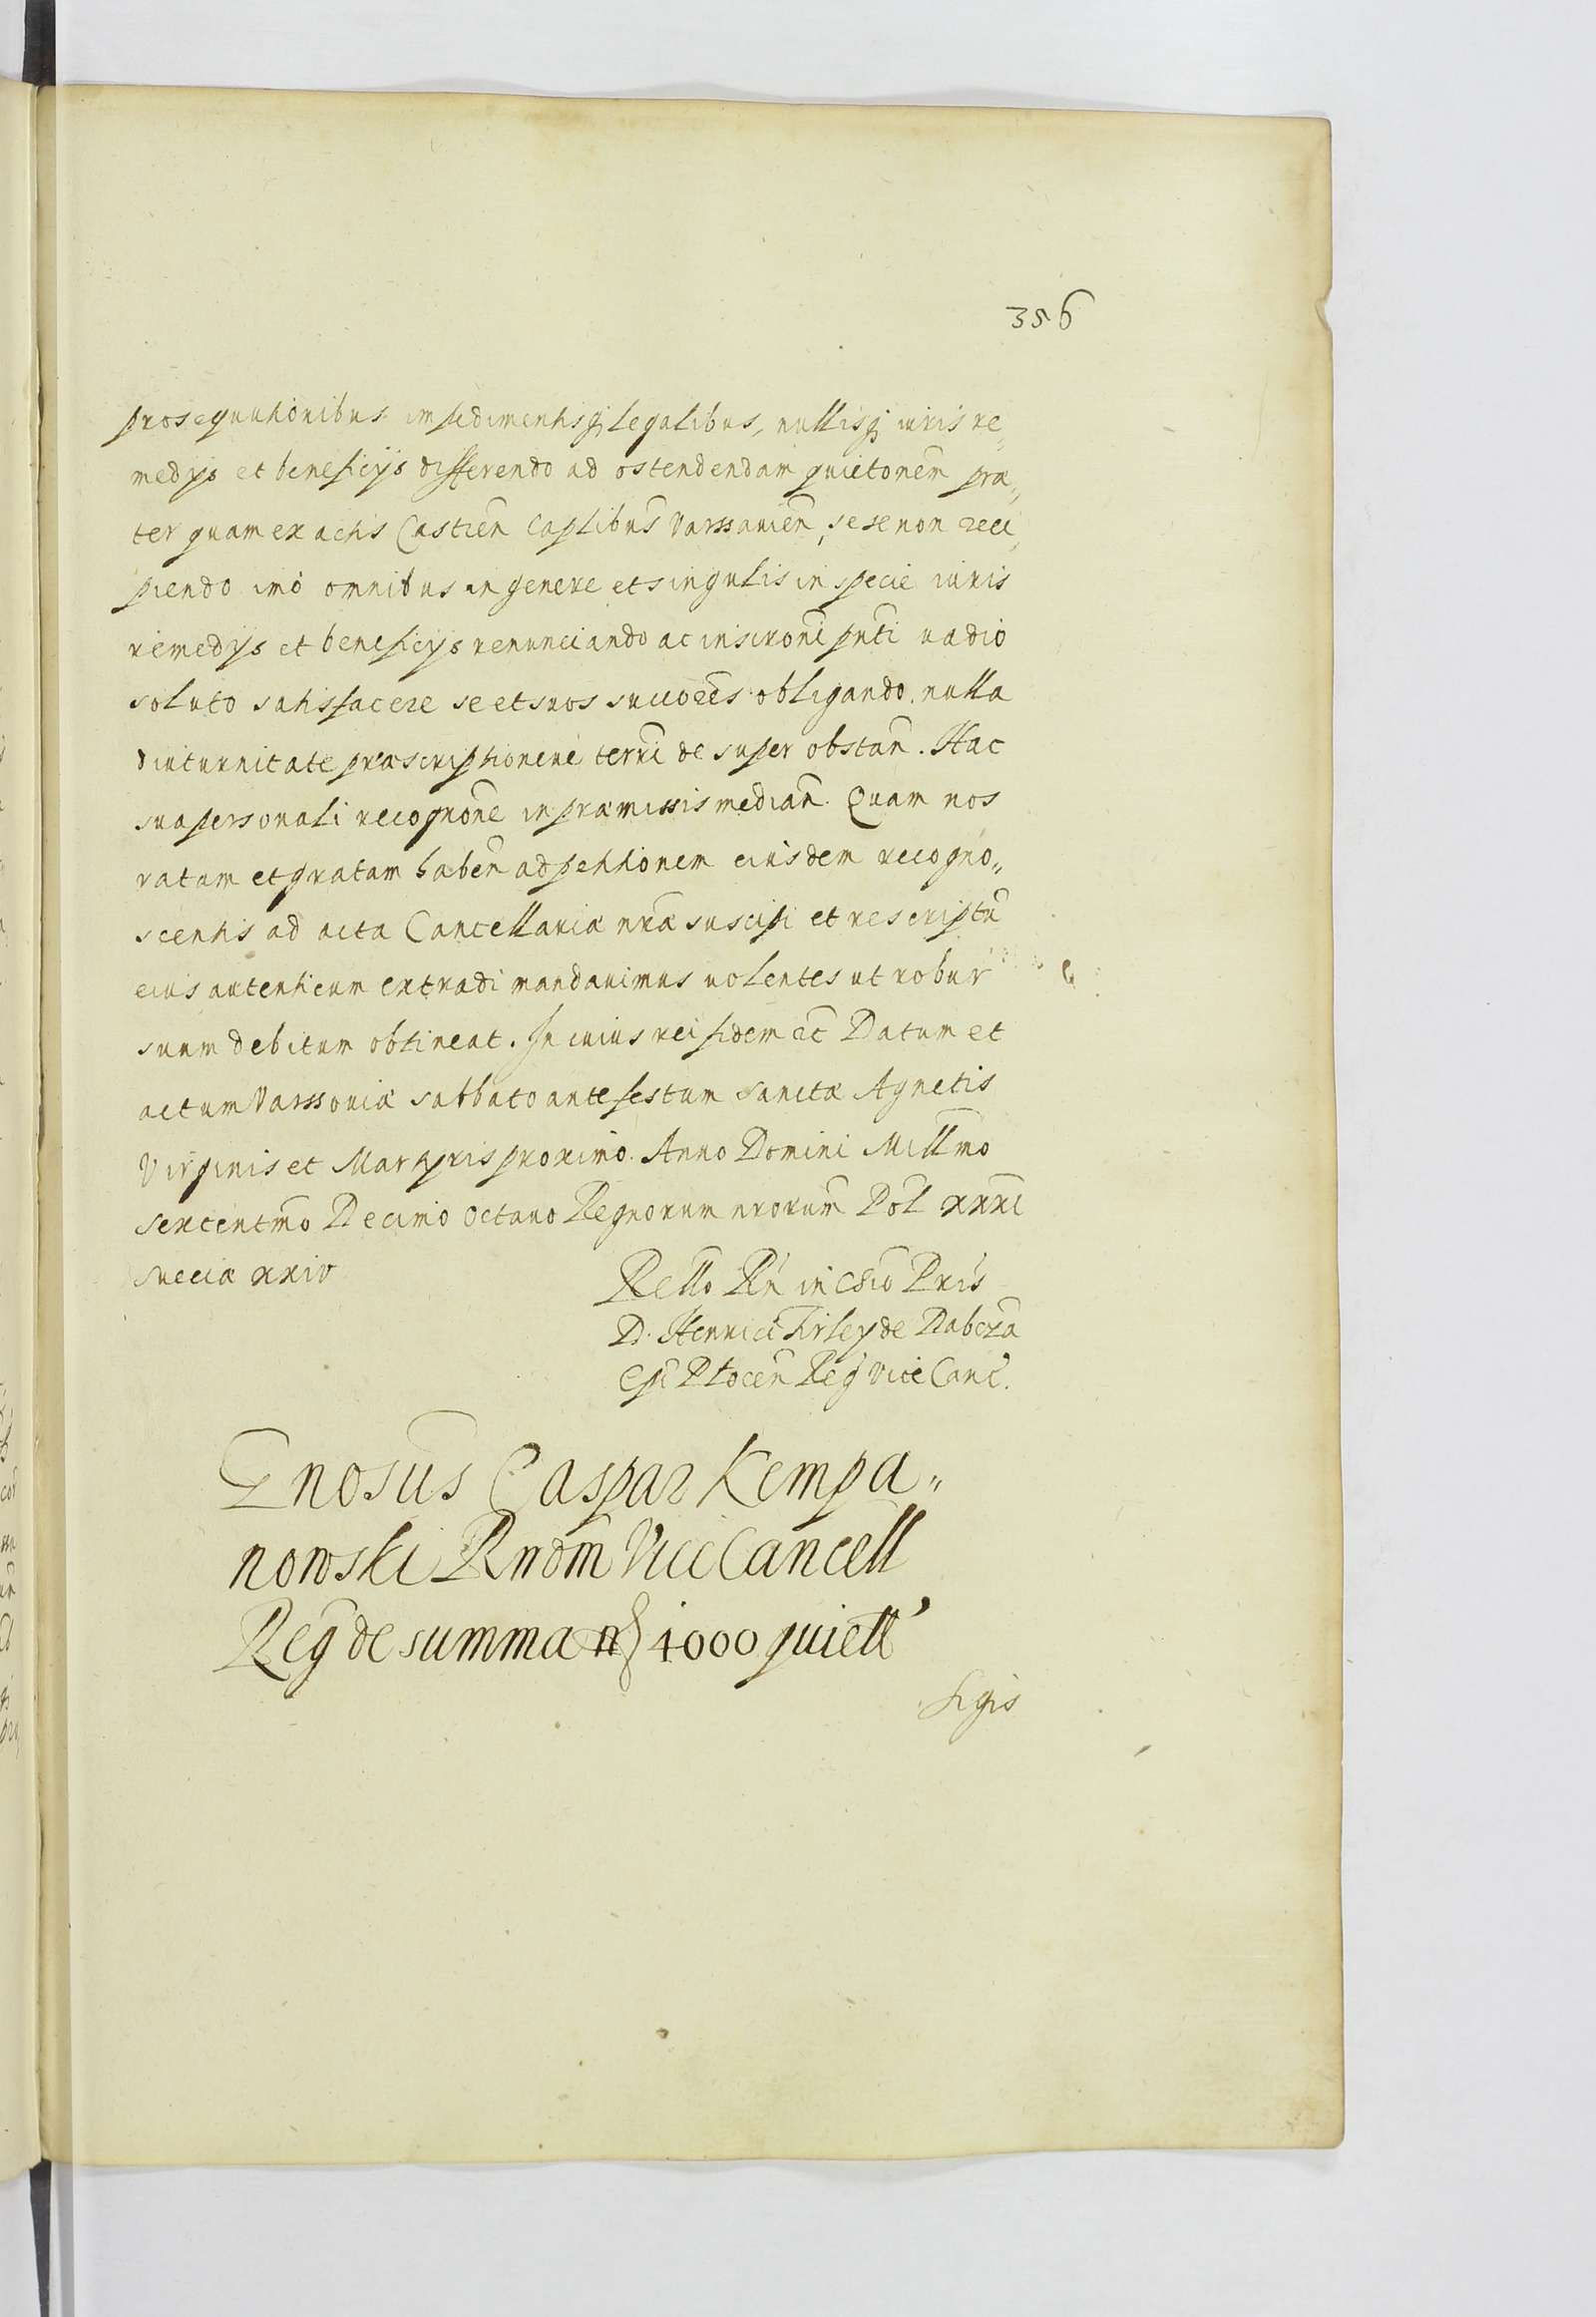 356
prosequutionibus impedimentisq; legalibus, nullisq; iuris re„
medys et beneficys differendo ad ostendendam quietonem præ„
ter quam ex actis Castren Caplibus Varssavien, sese non reci„
piendo imo omnibus in genere et singulis in specie iuris
remedys et beneficys renunciando ac inscroni pnti vadio
soluto satisfacere se et suos succores obligando. nulla
diuturnitate præscriptioneue terri de super obstan. Hac
sua personali recognone in præmissis median. Quam nos
ratam et gratam haben ad petitionem eiusdem recogno„
scentis ad acta Cancellariæ nræ suscipi et rescriptu
eius autenticum extradi mandauimus uolentes ut robur
suum debitum obtineat. In cuius rei fidem etc Datum et
actum Varssouiæ sabbato ante festum Sanctæ Agnetis
Virginis et Martyris proximo. Anno Domini Millmo
sexcentmo Decimo octauo Regnorum nrorum Pol xxxi
Sueciæ xxiv
Rello Rn in Chro Pris
D. Henrici Firley de Dabcza
Epi Plocen Reg Vice Canc.
Gnosus Caspar Kempa„
nowski Rndm Vice Cancell
Reg de summa fl 4000 quiett
Sigis